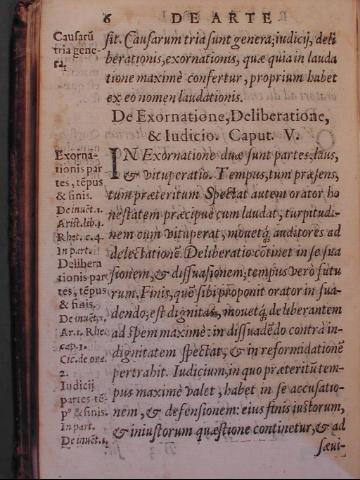 6 DE ARTE
Causarũ
tria gene
ra.
sit. Causarum tria sunt genera; iudicij, deli
berationis, exornationis, quæ quia in lauda
tione maximè confertur, proprium habet
ex eo nomen laudationis.
De Exornatione, Deliberatione,
& Iudicio. Caput. V.
Exorna-
tionis par
tes, tẽpus
& finis.
De inuẽt. 1.
Arist. lib. 1.
Rhet. c. 4.
In part.
Delibera
tionis par
tes, tẽpus
& finis.
De inuẽt. 1.
Ar. 1. Rhe.
cap. 1.
Cic. de ora.
2.
Iudicij
partes tẽ-
pº & finis.
In part.
De inuẽt. 1.
IN Exornatione duæ sunt partes, laus,
& vituperatio. Tempus, tum præsens,
tum præteritum Spectat autem orator ho
nestatem præcipuè cum laudat, turpitudi-
nem cum vituperat, mouetq́; auditores ad
delectationẽ. Deliberatio cõtinet in se sua
sionem, & dissuasionem; tempus verò futu
rum. Finis, quẽ sibi proponit orator in sua-
dendo; est dignitas, mouetq́; deliberantem
ad spem maximè: in dissuadẽdo contrà in-
dignitatem spectat, & in reformidationẽ
pertrahit. Iudicium, in quo præteritũ tem-
pus maximè valet, habet in se accusatio-
nem, & defensionem: eius finis iustorum,
& iniustorum quæstione continetur, & ad
sæui-